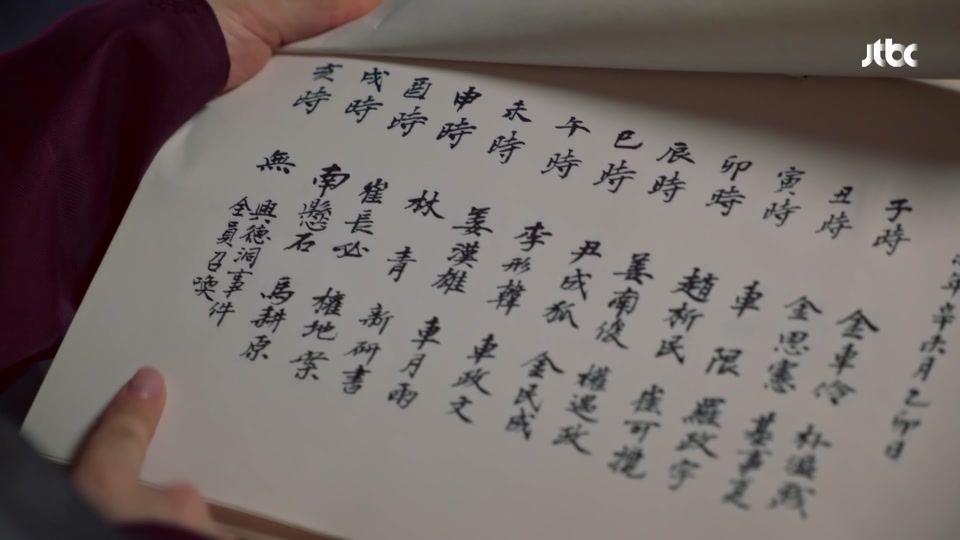 年辛未月乙卯日
子時 金車 朴
丑時 金思憲 事
寅時 車限 羅政宇
卯時 趙析民 崔可
辰時 姜南俊 權遇政
巳時 尹成狐 金民成
午時 李形韓 車政文
未時 姜漢雄 車月雨
申時 林青 新研書
酉時 崔長必 權地案
戌時 南懸石 馬耕原
亥時 無 興德洞事件
全員召喚
jtbc